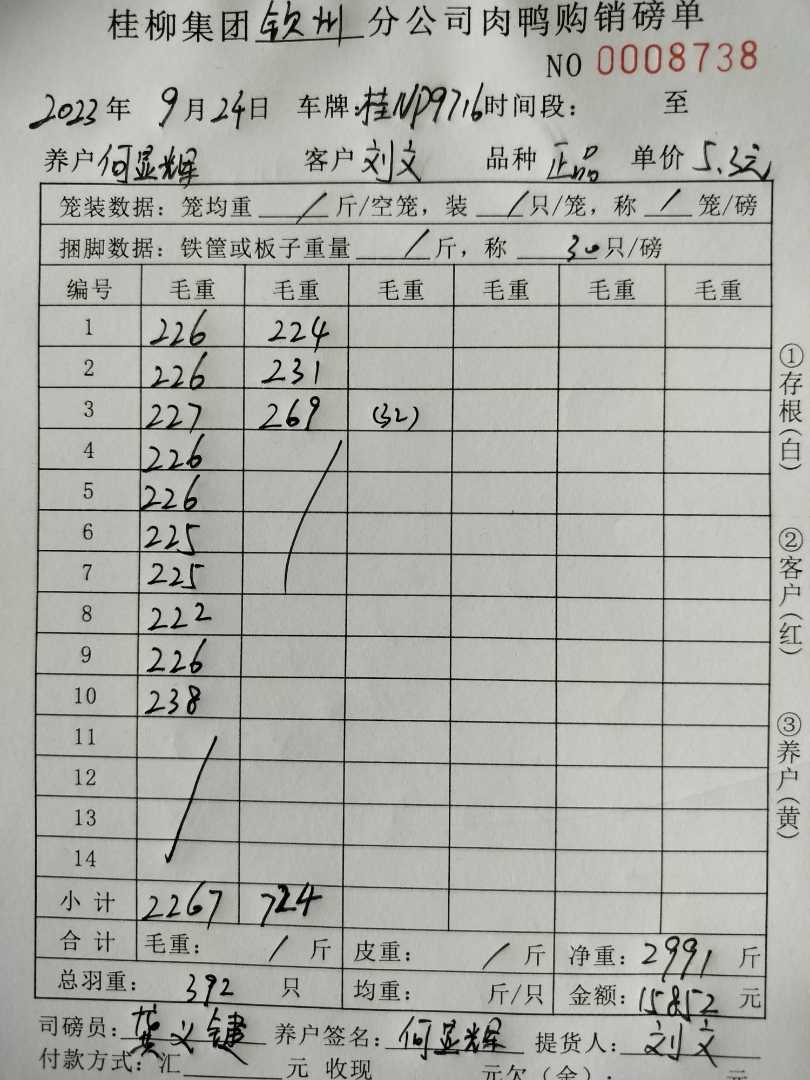 桂柳集团钦州分公司肉鸭购销磅单
NO 0008738
2023年 9月24日 车牌:桂NP9716时间段: 至
养户何显辉 客户刘文 品种正品 单价5.3元
笼装数据:笼均重/斤/空笼,装/只/笼,称/笼/磅
捆脚数据:铁筐或板子重量/斤,称30只/磅
编号 毛重 毛重 毛重 毛重 毛重 毛重
1 226 224
2 226 231
3 227 269 (32)
4 226
5 226
6 225
7 225
8 222
9 226
10 238
11
12
13
14
小计 2267 724
合计 毛重: / 斤 皮重: / 斤 净重:2991斤
总羽重: 392 只 均重: 斤/只 金额:15852元
司磅员:龚义键 养户签名:何显辉 提货人:刘文
付款方式:汇 元 收现 元欠(余): 元
①存根(白)
②客户(红)
③养户(黄)